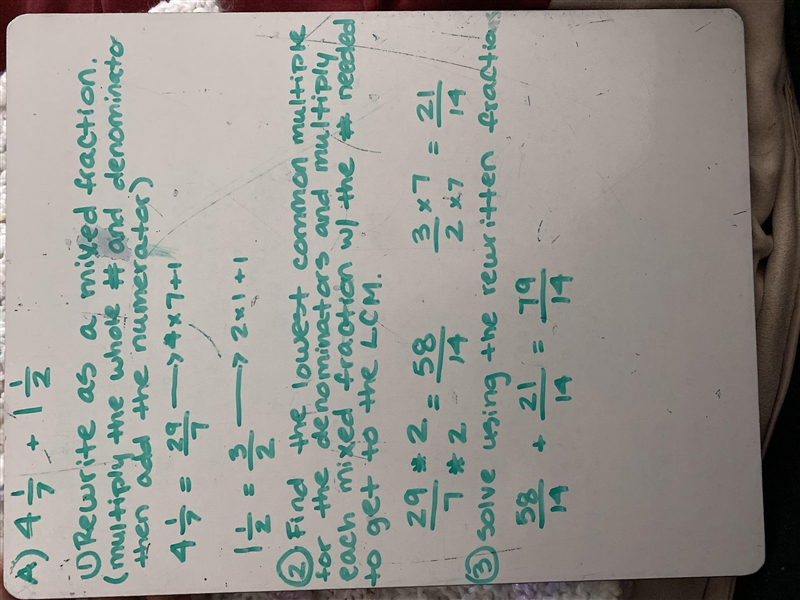 A) 4 1/7 + 1 1/2
① Rewrite as a mixed fraction.
(multiply the whole # and denominator
then add the numerator)
4 1/7 = 29/7 → 4 x 7 + 1
1 1/2 = 3/2 → 2 x 1 + 1
② Find the lowest common multiple
for the denominators and multiply
each mixed fraction w/ the # needed
to get to the LCM.
29 * 2 / 7 * 2 = 58/14    3 x 7 / 2 x 7 = 21/14
③ Solve using the rewritten fractions
58/14 + 21/14 = 79/14